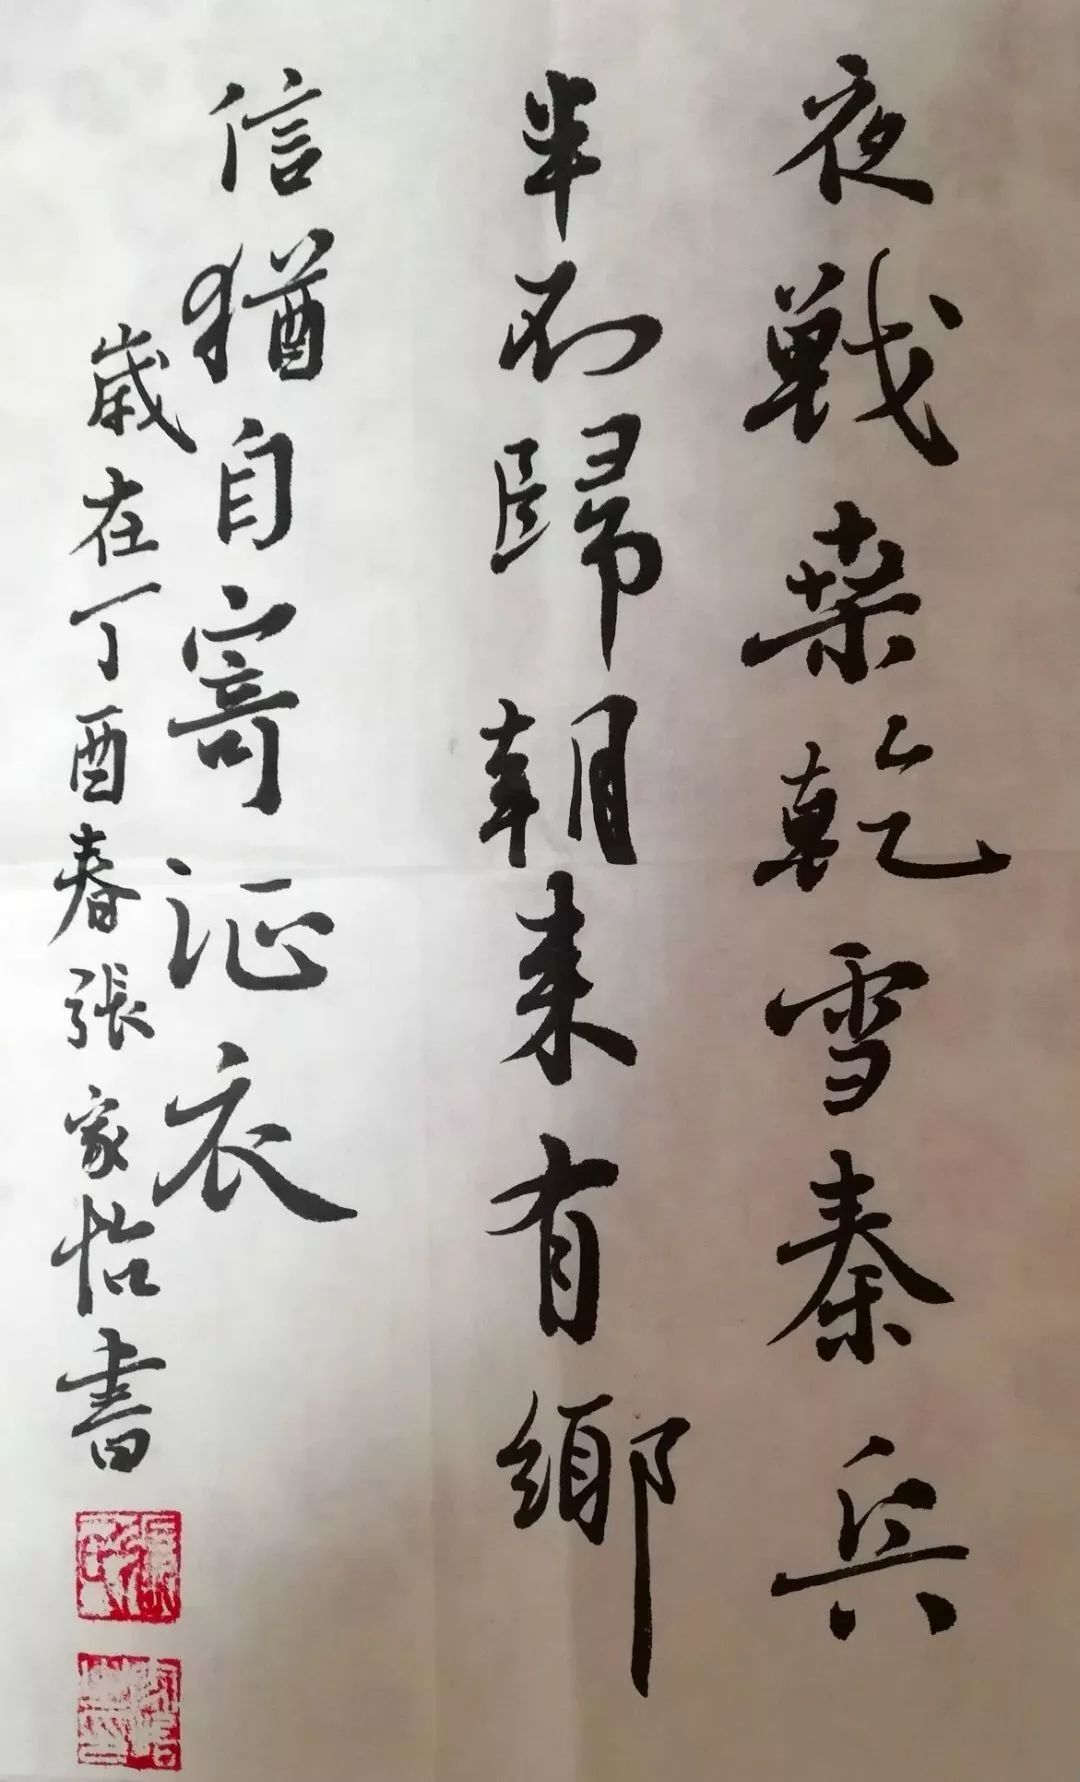 夜戰桑乾雪秦兵
半不歸朝来有鄉
信猶自寄征衣
歲在丁酉春張家怡書